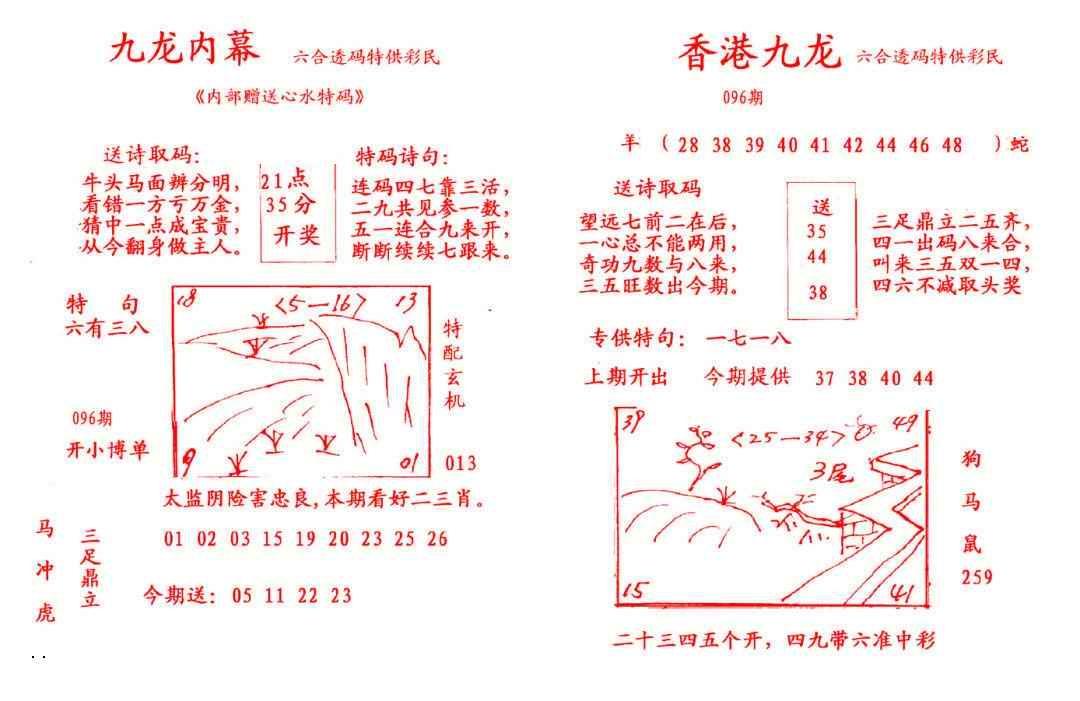 九龙内幕 六合透码特供彩民
《内部赠送心水特码》
送诗取码：
牛头马面辨分明，
看错一方亏万金，
猜中一点成宝贵，
从今翻身做主人。
21点
35分
开奖
特码诗句：
连码四七靠三活，
二九共见参一数，
五一连合九来开，
断断续续七跟来。
特 句
六有三八
096期
开小博单
18
〈5—16〉
13
9
01
特配玄机
013
太监阴险害忠良，本期看好二三肖。
马冲虎
三足鼎立
01 02 03 15 19 20 23 25 26
今期送：05 11 22 23
香港九龙 六合透码特供彩民
096期
羊 （28 38 39 40 41 42 44 46 48 ）蛇
送诗取码
望远七前二在后，
一心总不能两用，
奇功九数与八来，
三五旺数出今期。
送
35
44
38
三足鼎立二五齐，
四一出码八来合，
叫来三五双一四，
四六不减取头奖
专供特句： 一七一八
上期开出 今期提供 37 38 40 44
39
〈25—34〉
49
3尾
15
41
狗
马
鼠
259
二十三四五个开，四九带六准中彩